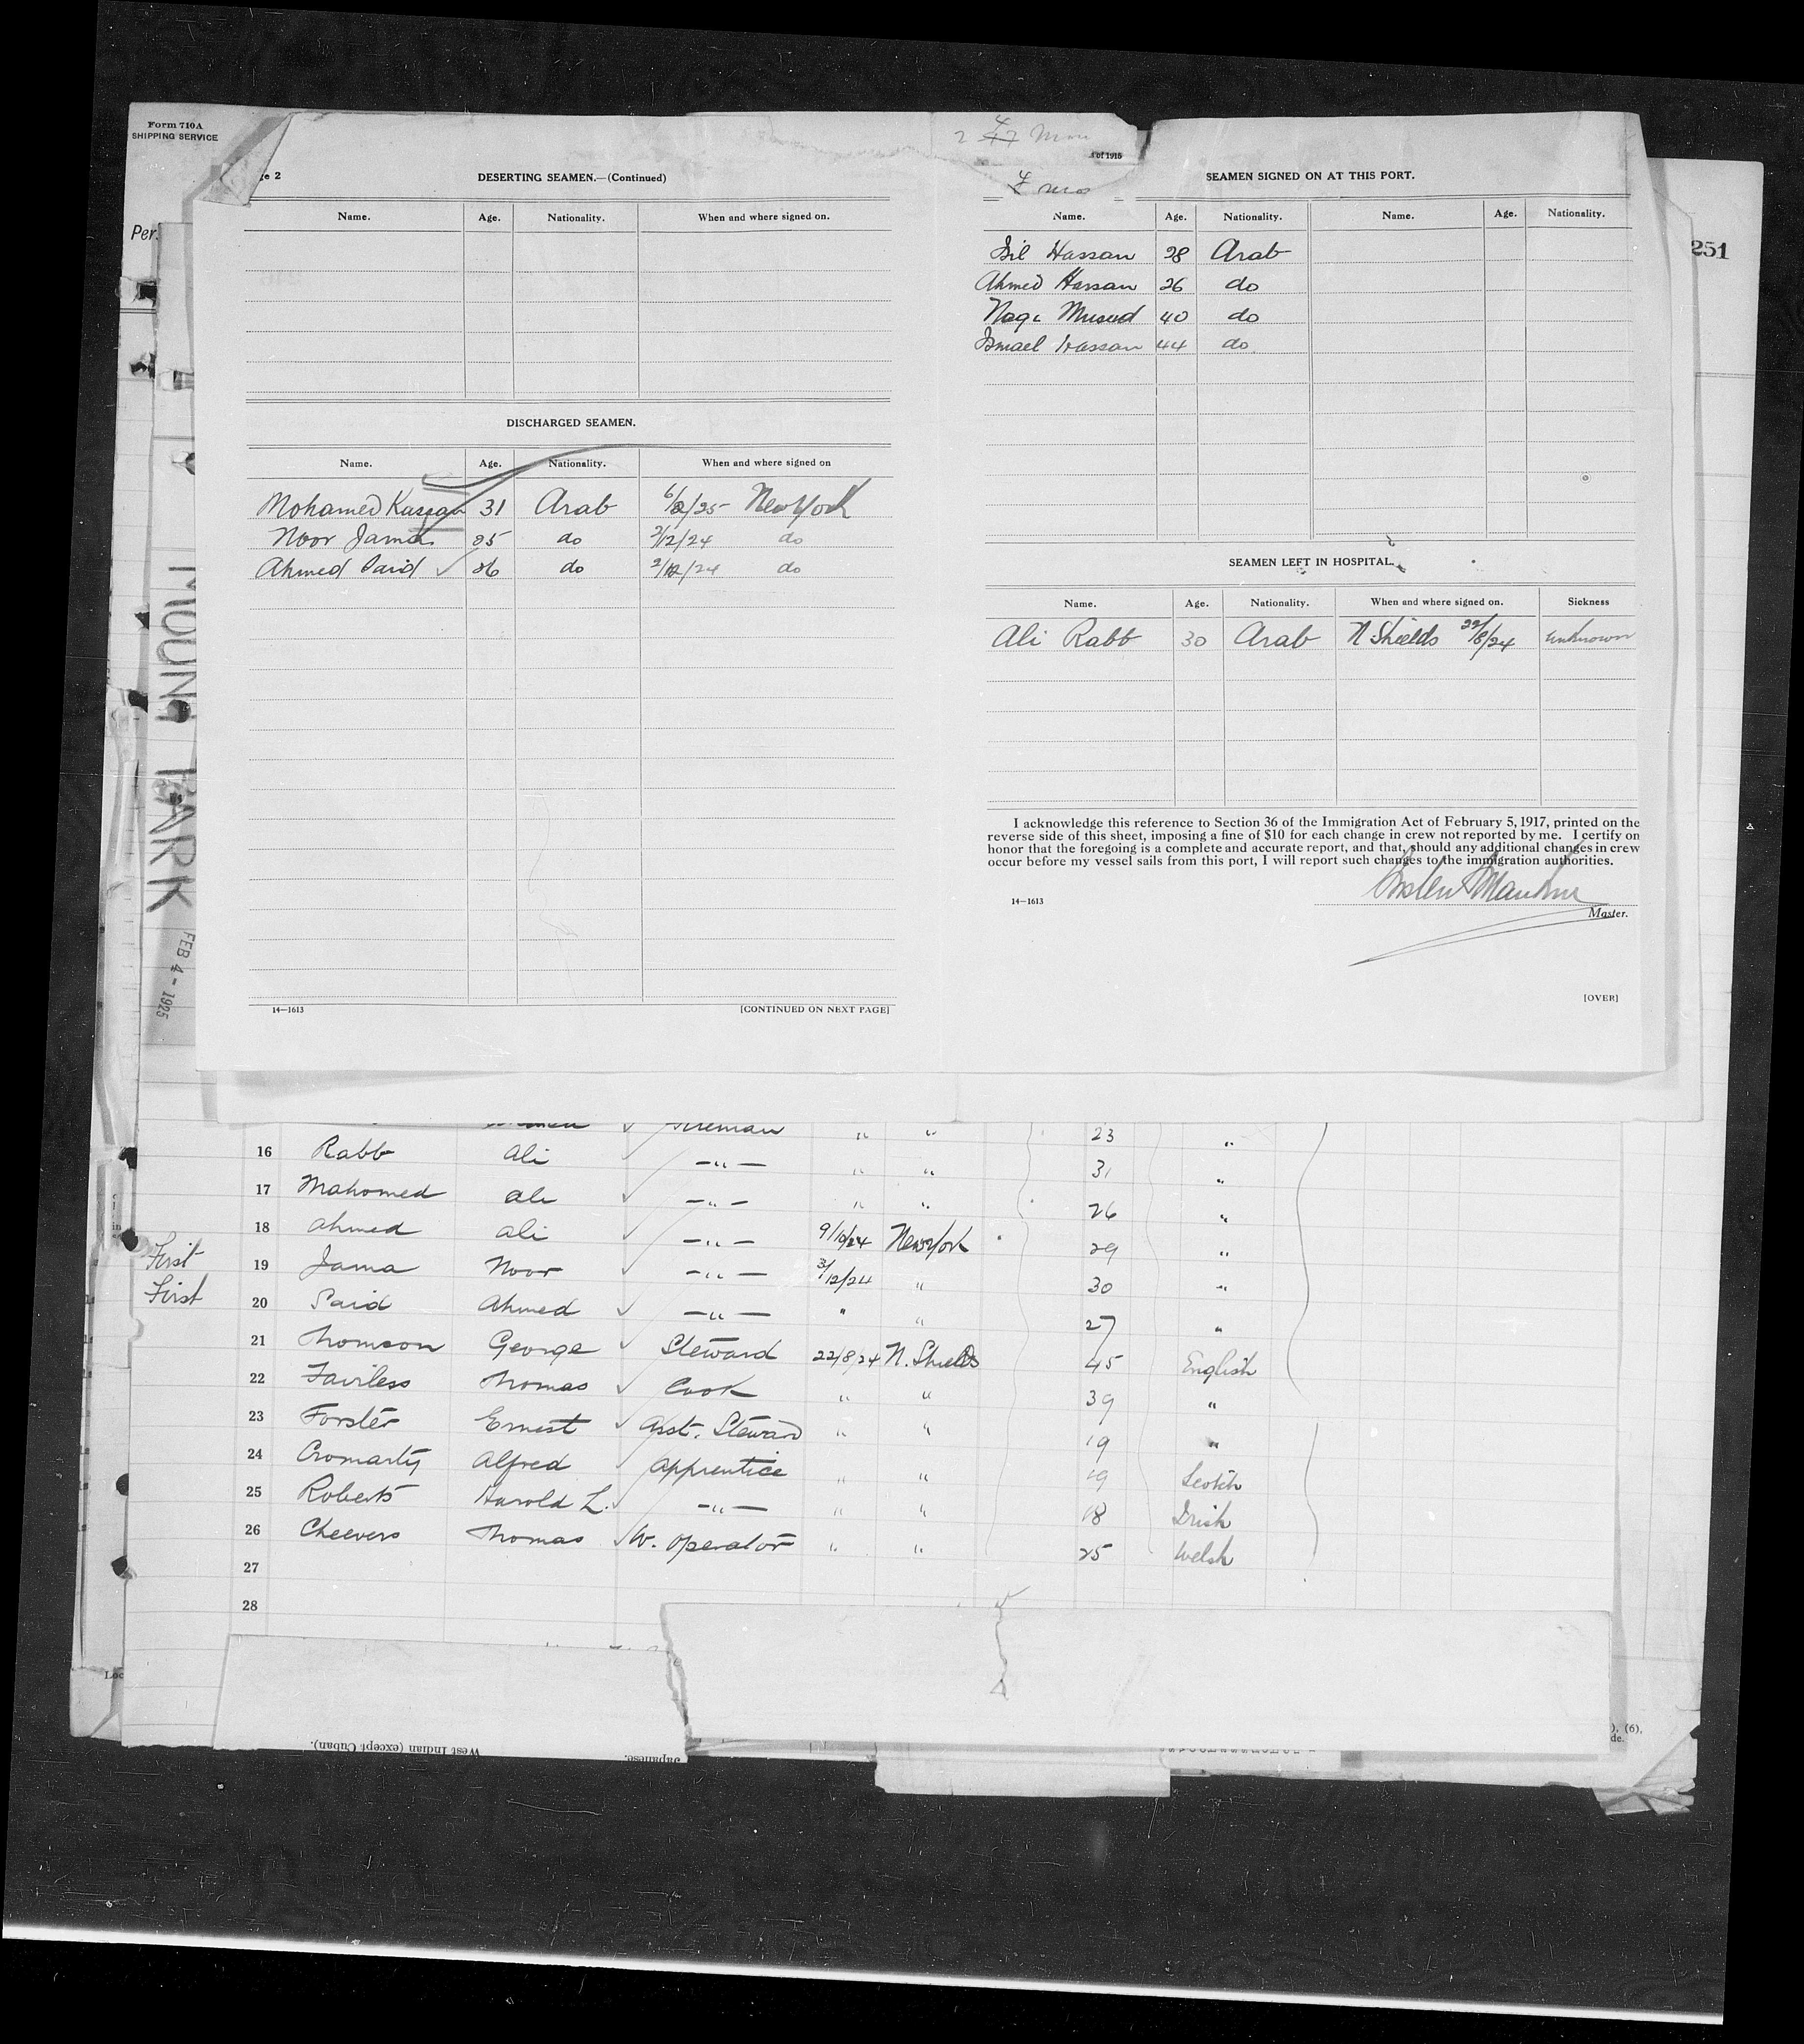 Form 710A
SHIPPING SERVICE
Per.
251
2 47 Mon
of 1915
e 2
DESERTING SEAMEN.—(Continued)
Name. Age. Nationality. When and where signed on.
DISCHARGED SEAMEN.
Name. Age. Nationality. When and where signed on
Mohamed Kassan 31 Arab 6/2/25 New York
Noor Jama 25 do 3/12/24 do
Ahmed Said 26 do 3/12/24 do
14—1613
[CONTINUED ON NEXT PAGE]
SEAMEN SIGNED ON AT THIS PORT.
Name. Age. Nationality. Name. Age. Nationality.
Hassan 28 Arab
Ahmed Hassan 26 do
Musud 40 do
Ismael Hassan 44 do
SEAMEN LEFT IN HOSPITAL.
Name. Age. Nationality. When and where signed on. Sickness
Ali Rabb 30 Arab N Shields 22/8/24 unknown
I acknowledge this reference to Section 36 of the Immigration Act of February 5, 1917, printed on the
reverse side of this sheet, imposing a fine of $10 for each change in crew not reported by me. I certify on
honor that the foregoing is a complete and accurate report, and that, should any additional changes in crew
occur before my vessel sails from this port, I will report such changes to the immigration authorities.
14—1613
Master.
[OVER]
MOUNT PARK
FEB 4 - 1925
Fireman " " 23 "
16 Rabb Ali —"— " " 31 "
17 Mahomed Ali —"— " " 26 "
18 Ahmed Ali —"— 9/10/24 New York 29 "
First 19 Jama Noor —"— 3/12/24 " 30 "
First 20 Said Ahmed —"— " " 27 "
21 Thomson George Steward 22/8/24 N. Shields 45 English
22 Fairless Thomas Cook " " 39 "
23 Forster Ernest Asst. Steward " " 19 "
24 Cromarty Alfred Apprentice " " 19 Scotch
25 Roberts Harold L. —"— " " 18 Irish
26 Cheevers Thomas W. Operator " " 25 Welsh
27
28
Loc
), (6),
de.
West Indian (except Cuban).
Japanese.